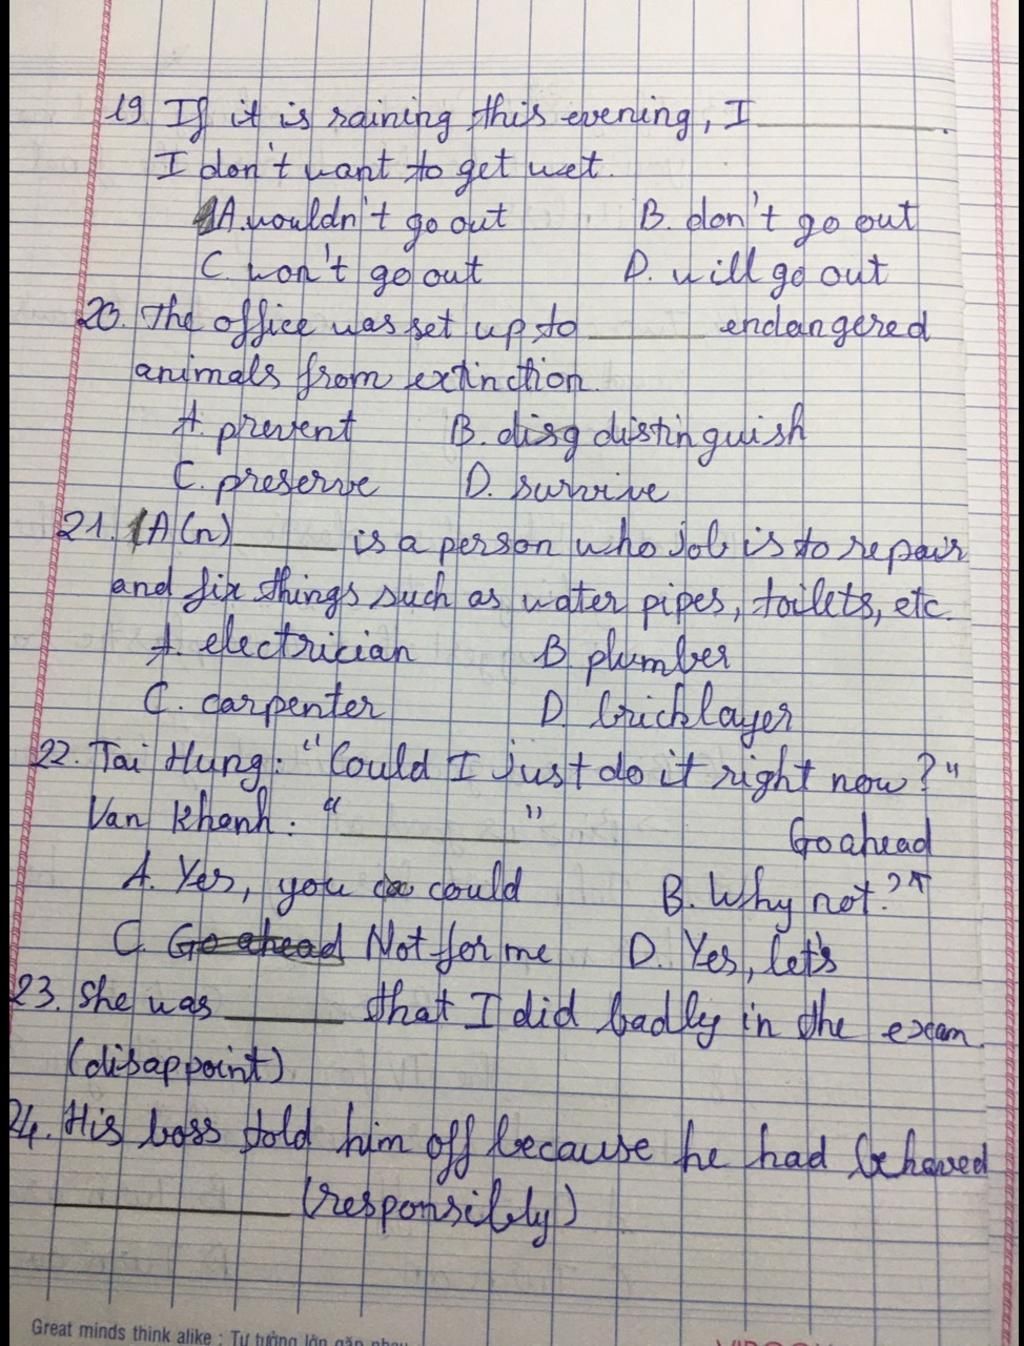 19. If it is raining this evening, I ________.
I don't want to get wet.
A. wouldn't go out B. don't go out
C. won't go out D. will go out
20. The office was set up to ______ endangered
animals from extinction.
A. prevent B. disg distinguish
C. preserve D. survive
21. A(n) ______ is a person who job is to repair
and fix things such as water pipes, toilets, etc.
A. electrician B. plumber
C. carpenter D. bricklayer
22. Tai Hung: "Could I just do it right now?"
Van Khanh: "________"
Go ahead
A. Yes, you ca could B. Why not?
C. Go ahead Not for me D. Yes, let's
23. She was ______ that I did badly in the exam.
(disappoint)
24. His boss told him off because he had behaved
__________ (responsibly)
Great minds think alike : Tư tưởng lớn gặp nhau